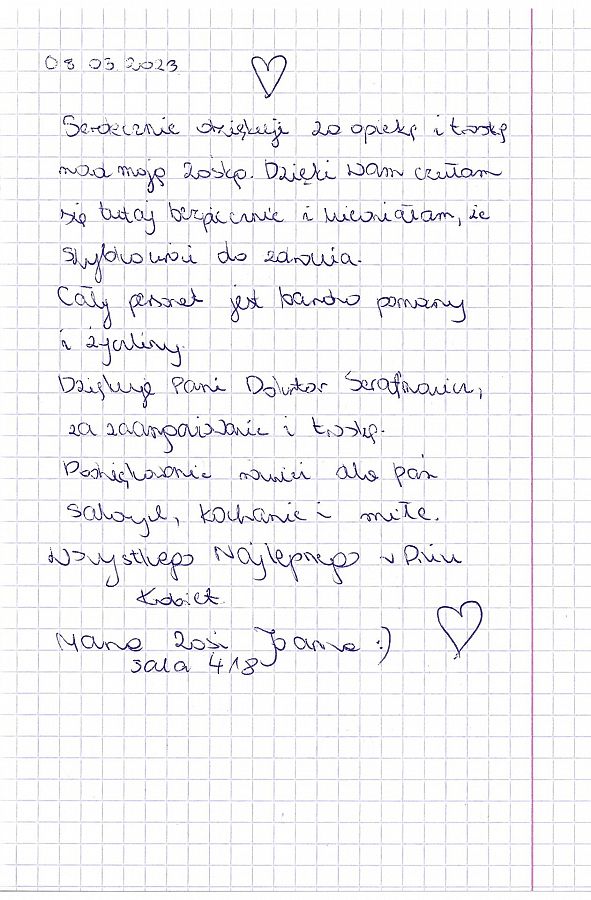 08 03 2023
Serdecznie dziękuję za opiekę i troskę
nad moją Zoską. Dzięki Wam czułam
się tutaj bezpiecznie i wiedziałam, że
szybko wróci do zdrowia.
Cały personel jest bardzo pomocny
i życzliwy.
Dziękuję Pani Doktor Serafinowicz,
za zaangażowanie i troskę.
Podziękowanie również dla pań
salowych, kochanie i miłe.
Wszystkiego Najlepszego w Dniu
Kobiet.
Mama Zosi Joanna :)
sala 418